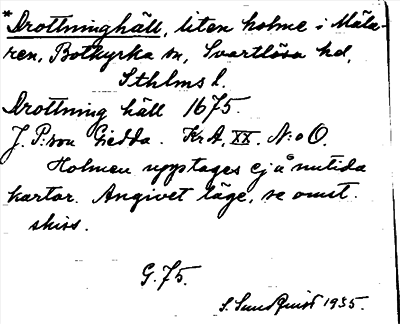 *Drottninghäll, liten holme i Mäla-
ren, Botkyrka sn, Svartlösa hd,
Sthlms l.
Drottning häll 1675.
J. P:son Giedda. KrA, XX. N:o O.
Holmen upptages ej å nutida
kartor. Angivet läge, se omst.
skiss.
G. 75.
S. Sundquist 1935.